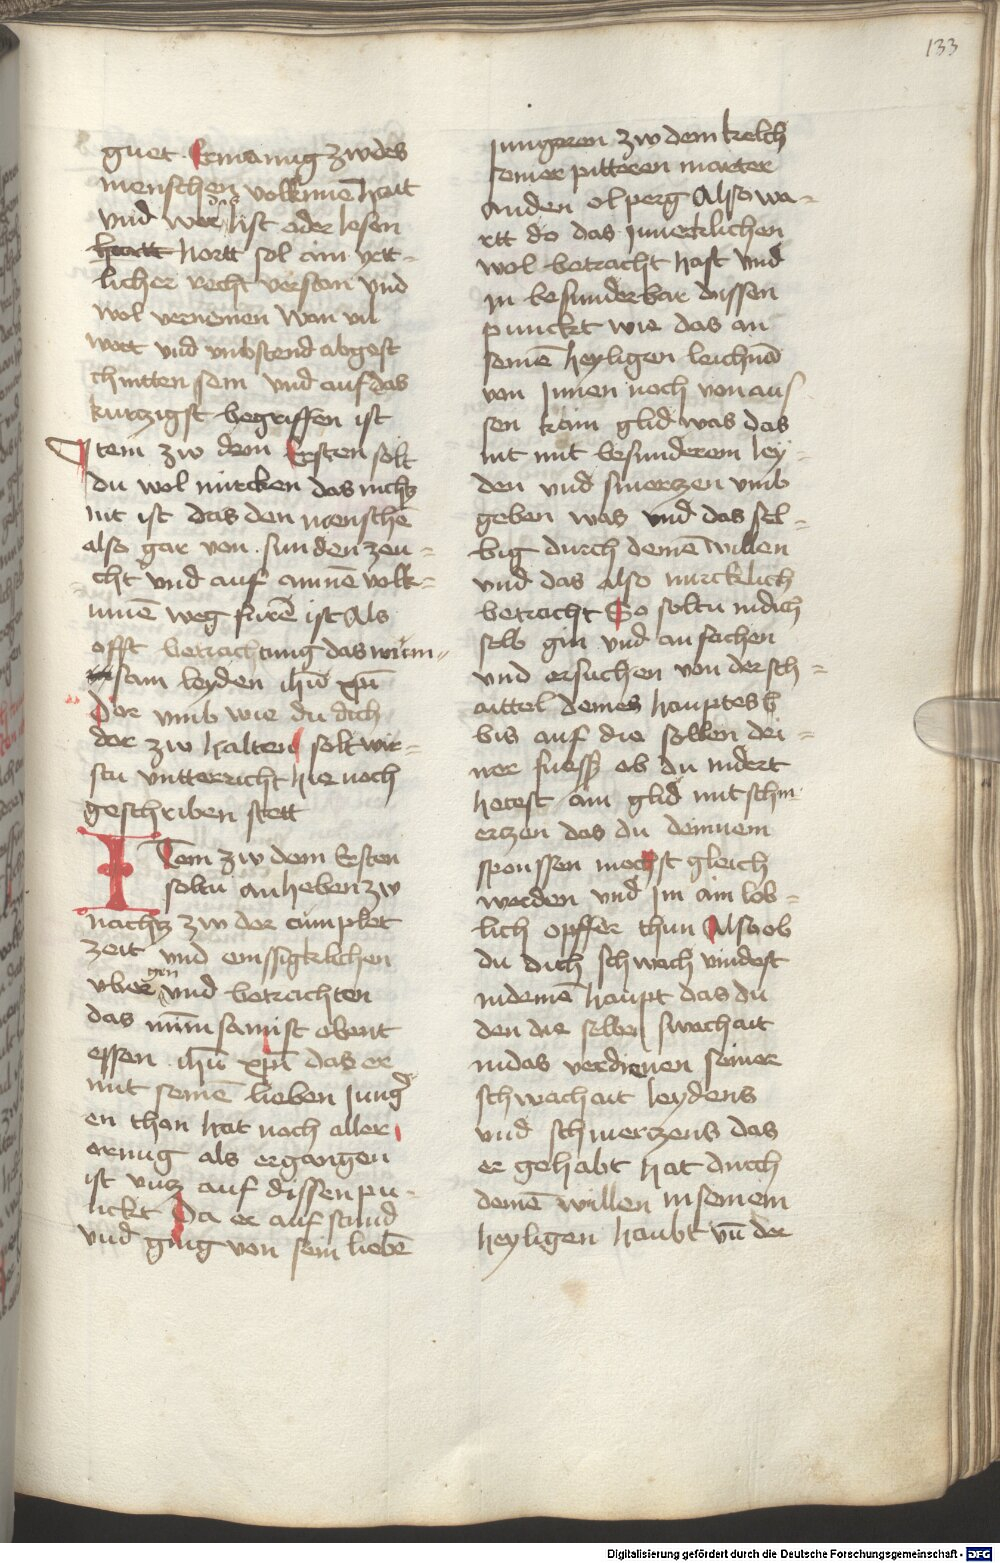 133
guet Ermanug zw des
menschen volkūnē hait
und wer dz list oder lesen
hortt sol ain yett-
licher recht verston und
wol vernemen wan vil
wort und umbstend abgest
chnitten sein und auf das
kurczigst begriffen ist
Item zw dem Ersten solt
du wol mircken das nichcz
nit ist das den mensche
also gar von sunden zeu-
cht und auf ainnē volk-
umē weg furē ist Als
offt betrachtung das wirm-
sam leyden ihū xpū
Dor umb wie du dich
dor zw halten solt wir-
stu untterricht hie noch
geschriben stett
ITem zw dem Ersten
soltu an heben zw
nachcz zw der cumplet
zeit und emssigklichen
uber gen und betrachten
das mīmsamist obent
essen ihū xpū das er
mit seinē lieben jung
en than hat noch aller
ornug als ergangen
ist uncz auf dissen pu-
nckt Da er auf stund
und ging von sein liebē
jungeren zw dem kelch
seiner pitteren marter
an den olperg Also wa-
rtt do das jnnerklichen
wol betracht hast und
jn besunderbar dissen
punckt wie das an
seinē heyligen leichnā
von jnnen noch von aus
sen kain glid was das
nit mit besunderem ley-
den und smerczen umb
geben was und das sel-
big durch deinē willen
und das also mircklich
betracht So soltu in dich
selb gin und an sechen
und ersuchen von der sch-
aittel deines hauptes
bis auf die sollen dei-
ner fuessz ob du indert
hetest ain glid mit schm
erczen das du deinnem
sponssen mochst gleich
werden und jm ain lob-
lich opffer thun Also ob
du dich schwach vindest
in deinē haupt das du
den die selben swachait
in das verdienen seiner
schwachait leydens
und schmerczens das
er gehabt hat durch
deinē willen in seinem
heyligen haubt uñ der
Digitalisierung gefördert durch die Deutsche Forschungsgemeinschaft - DFG